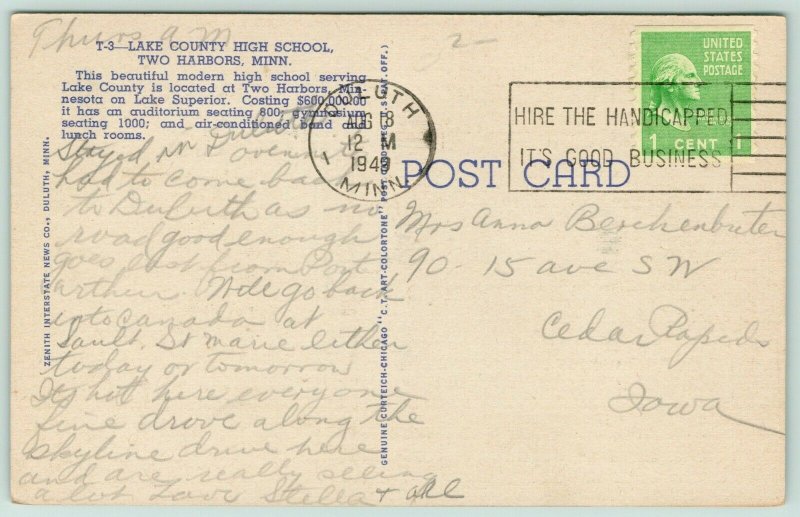 Thurs a.m
2-
T-3—LAKE COUNTY HIGH SCHOOL,
TWO HARBORS, MINN.
This beautiful modern high school serving
Lake County is located at Two Harbors, Min-
nesota on Lake Superior. Costing $600,000.00
it has an auditorium seating 800; gymnasium
seating 1000; and air-conditioned band and
lunch rooms.
Stayed in Duluth
overnite
had to come back
to Duluth as no
road good enough
goes east from Port
Arthur. We'll go back
into Canada at
Sault. St marie either
today or tomorrow
Its hot here everyone
fine drove along the
skyline drive here
and are really seeing
a lot Love Stella + all
ZENITH INTERSTATE NEWS CO., DULUTH, MINN.
GENUINE CURTEICH-CHICAGO "C.T. ART-COLORTONE" POST CARD (REG. U.S. PAT. OFF.)
DULUTH
AUG 18
12 M
1949
1 MINN.
HIRE THE HANDICAPPED
IT'S GOOD BUSINESS
UNITED
STATES
POSTAGE
1 CENT 1
POST CARD
Mrs Anna Berchenbriter
90-15 ave SW
Cedar Rapids
Iowa